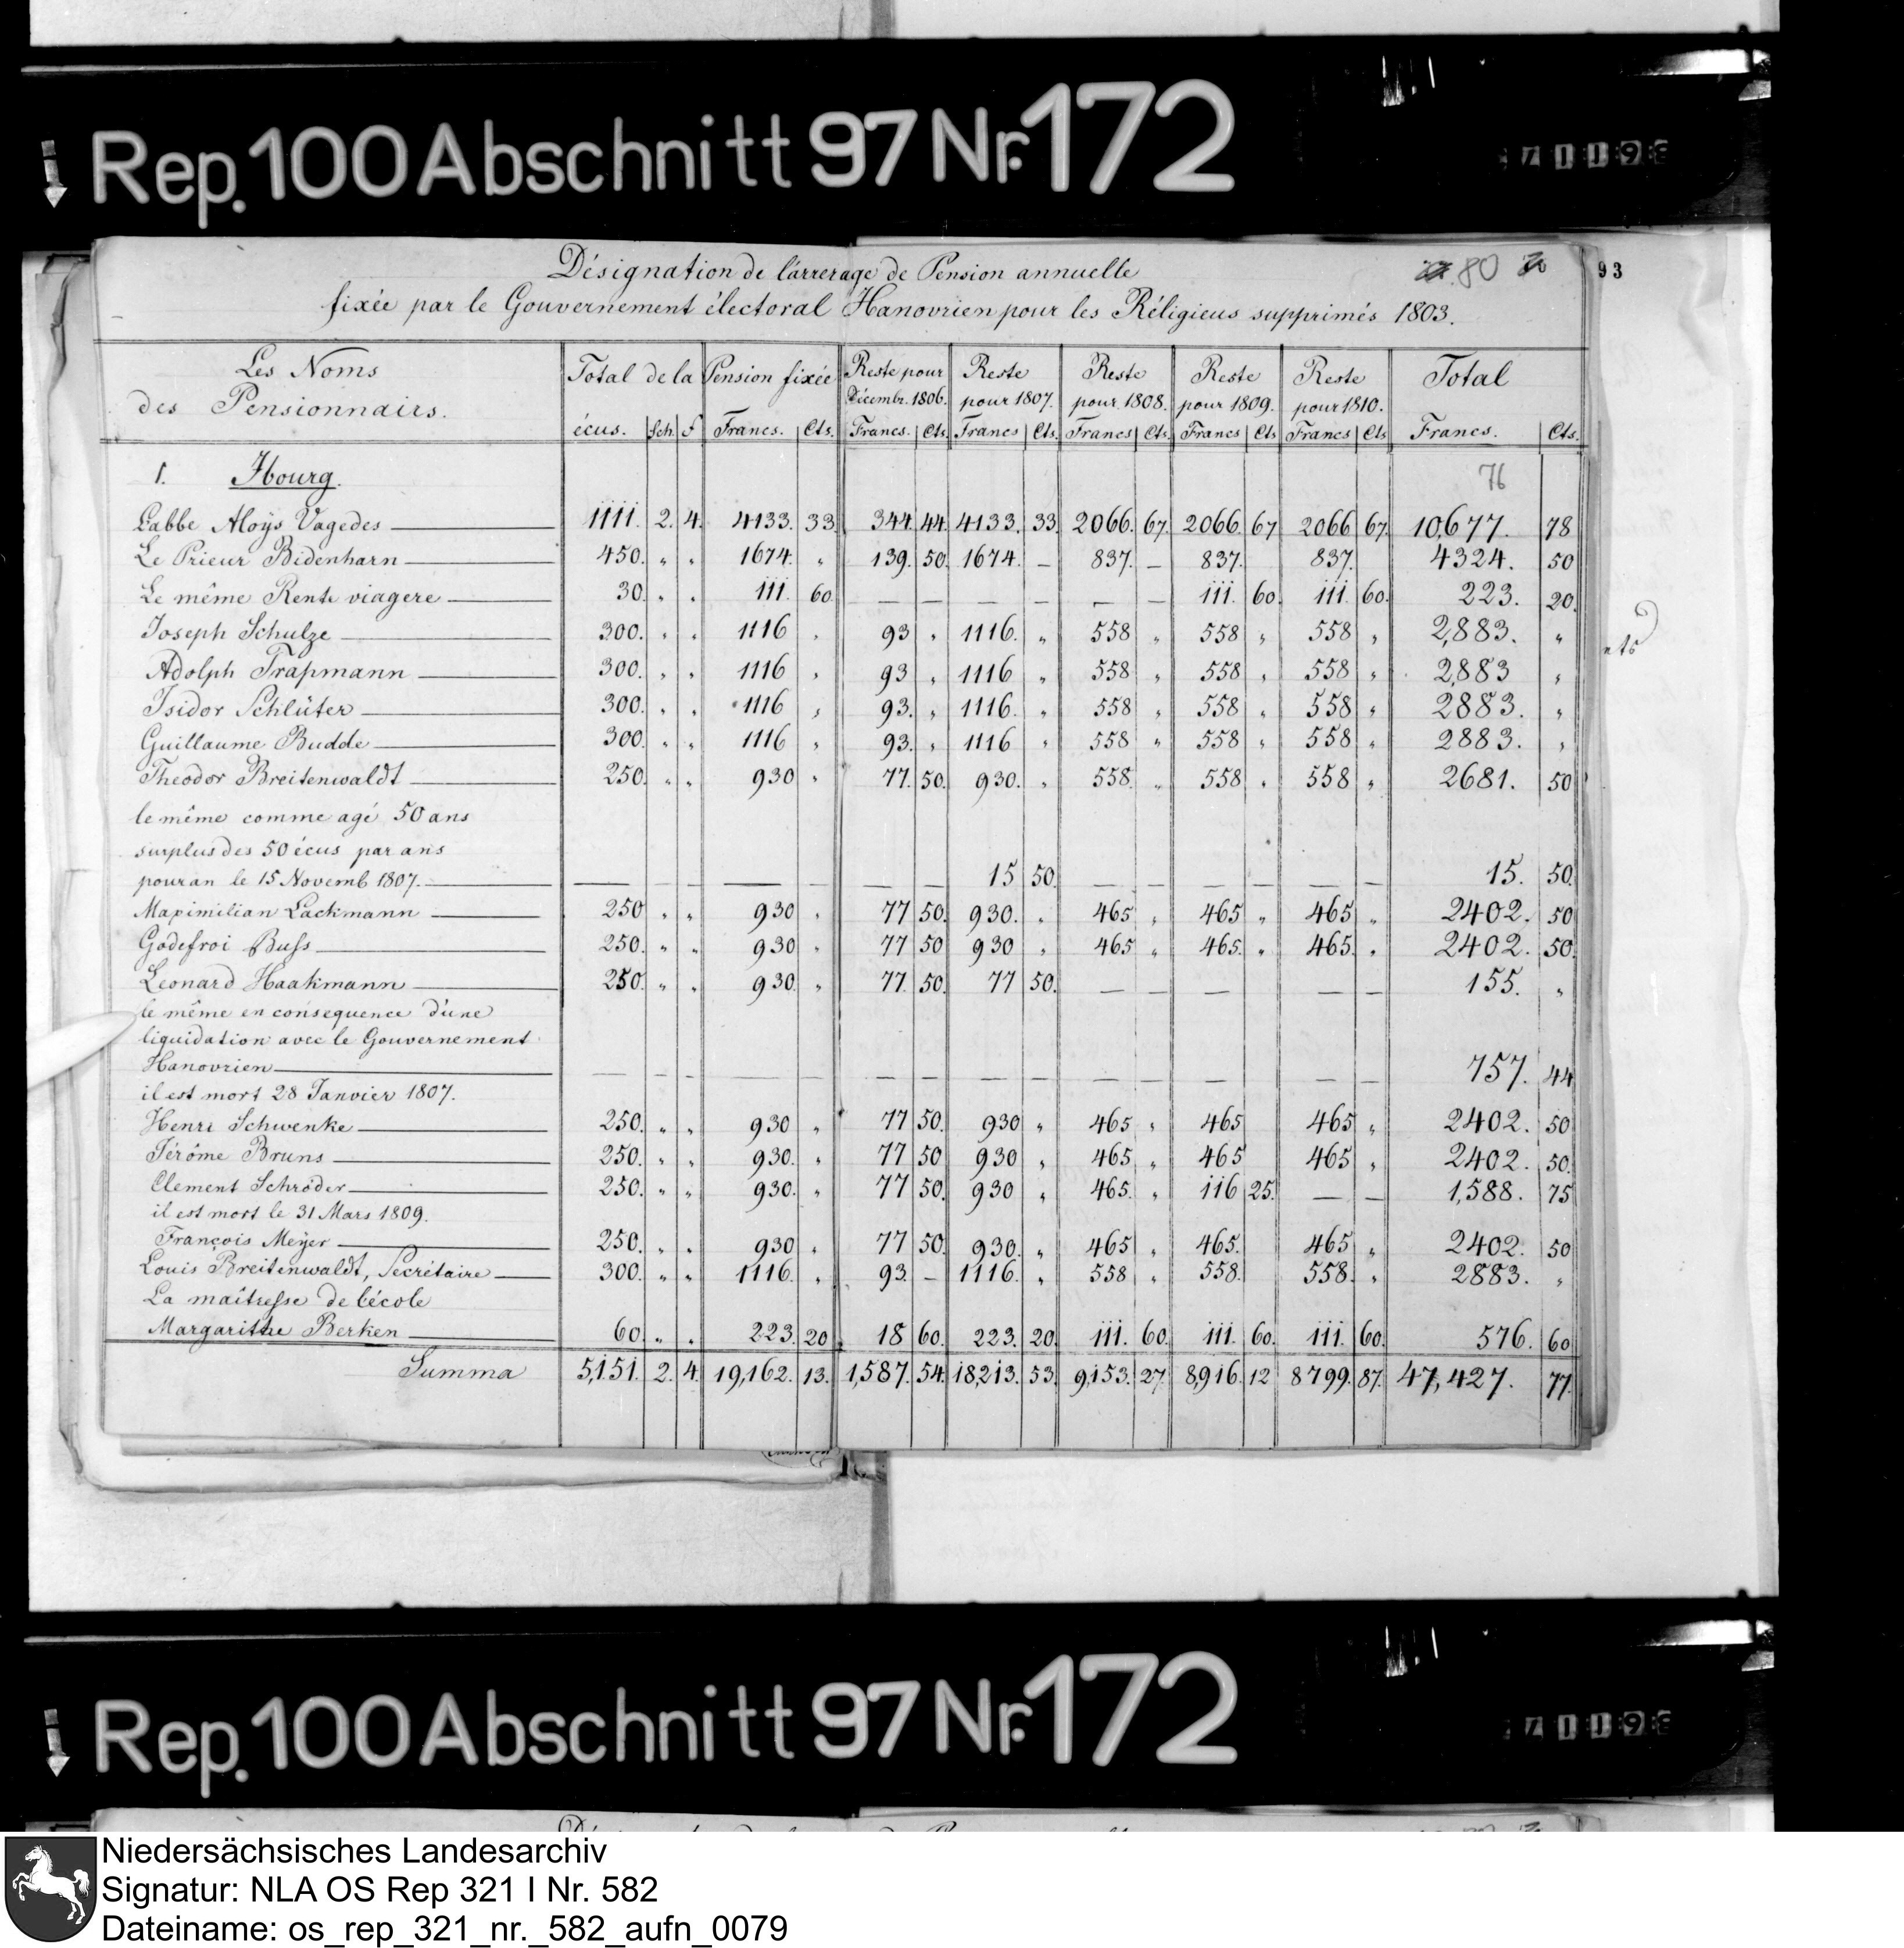 Rep. 100 Abschnitt 97 Nr. 172
Désignation de l'arrerage de Pension annuelle
80
93
fixée par le Gouvernement électoral Hanovrien pour les Réligieus supprimés 1803.
Les Noms des Pensionnairs. | Total de la Pension fixée | Reste pour Décembr. 1806. | Reste pour 1807. | Reste pour 1808. | Reste pour 1809. | Reste pour 1810. | Total
écus. | Sch. | d | Francs. | Cts. | Francs. | Cts. | Francs | Cts. | Francs | Cts. | Francs | Cts | Francs | Cts | Francs. | Cts.
1. Iburg. 76
L'abbe Aloÿs Vagedes 1111. 2. 4. 4133. 33. 344. 44. 4133. 33. 2066. 67. 2066. 67 2066 67. 10,677. 78
Le Prieur Bidenharn 450. " " 1674. " 139. 50. 1674. — 837. — 837. 837. 4324. 50
Le même Rente viagere 30. " " 111. 60 — — — — — — 111. 60. 111. 60. 223. 20.
Joseph Schulze 300. " " 1116 " 93 " 1116. " 558 " 558 " 558 " 2,883. "
Adolph Trapmann 300. " " 1116 " 93 " 1116 " 558 " 558 " 558 " 2,883 "
Isidor Schlüter 300. " " 1116 " 93. " 1116. " 558 " 558 " 558 " 2883. "
Guillaume Budde 300. " " 1116 " 93. " 1116 " 558 " 558 " 558 " 2883. "
Theodor Breitenwaldt 250. " " 930 " 77. 50. 930. " 558. " 558 " 558 " 2681. 50
le même comme agé 50 ans
surplus des 50 écus par ans
pour an le 15 Novemb 1807. — — — — — — — 15 50. — — — — — — 15. 50.
Maximilian Lackmann 250 " " 930 " 77 50. 930. " 465 " 465 " 465 " 2402. 50
Godefroi Buss 250. " " 930 " 77 50 930 " 465 " 465. " 465. " 2402. 50.
Leonard Haakmann 250. " " 930. " 77. 50. 77 50. — — — — — 155. "
le même en consequence d'une
liquidation avec le Gouvernement
Hanovrien — — — — — — — — — — — — — — 757. 44
il est mort 28 Janvier 1807.
Henri Schwenke 250. " " 930 " 77 50. 930 " 465 " 465 465 " 2402. 50
Jérôme Bruns 250. " " 930. " 77 50 930 " 465 " 465 465 " 2402. 50.
Clement Schröder 250. " " 930. " 77 50. 930 " 465. " 116 25. — — 1,588. 75
il est mort le 31 Mars 1809.
François Meÿer 250. " " 930 " 77 50. 930. " 465 " 465. 465 " 2402. 50
Louis Breitenwaldt, Secrétaire 300. " " 1116. " 93. — 1116. " 558 " 558. 558. " 2883. "
La maîtresse de l'école
Margarithe Berken 60. " " 223. 20. 18 60. 223. 20. 111. 60. 111. 60. 111. 60. 576. 60
Summa 5,151. 2. 4. 19,162. 13. 1,587. 54. 18,213. 53. 9,153. 27. 8,916. 12 8799. 87. 47,427. 77.
Rep. 100 Abschnitt 97 Nr. 172
Niedersächsisches Landesarchiv
Signatur: NLA OS Rep 321 I Nr. 582
Dateiname: os_rep_321_nr._582_aufn_0079